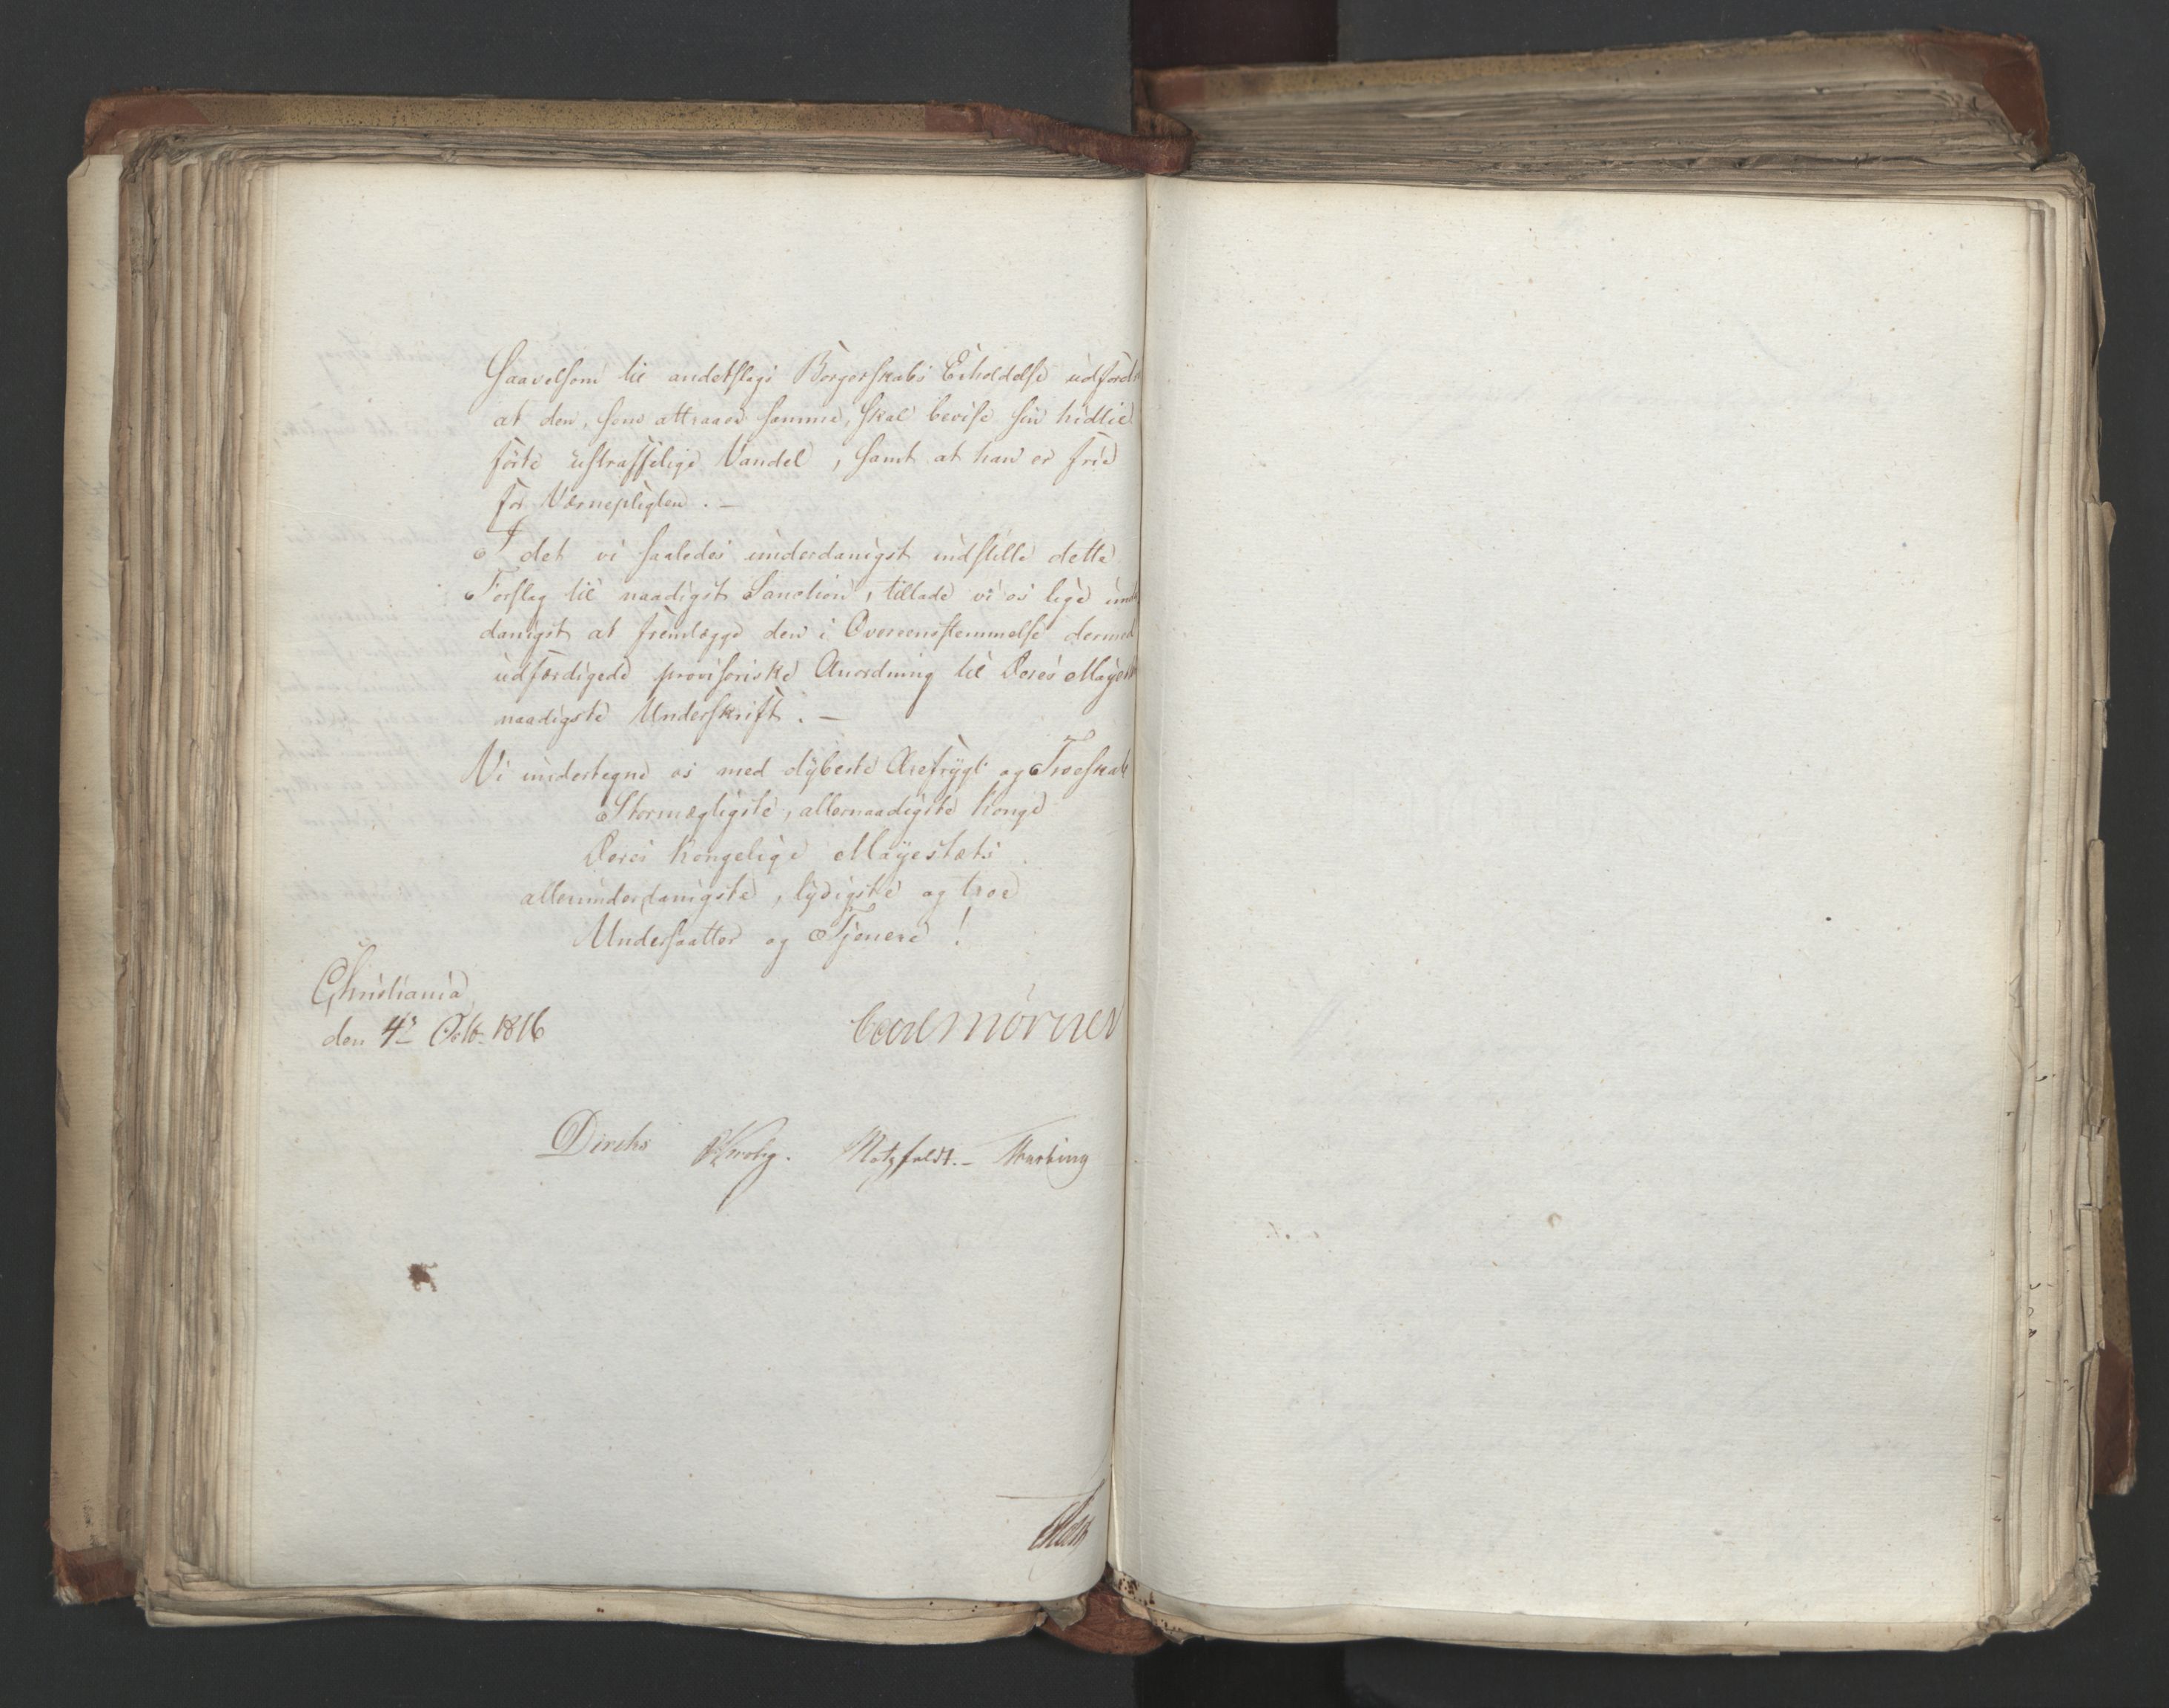 saavelsom til andetslags Borgerskabs Erholdelse udford
at den, som attraaer samme, skal bevise sin hidtil
førte ustraffelige Vandel, samt at han er frie
for Værnepligten. –
I det vi saaledes underdanigst indstille dette
Forslag til naadigst Sanction, tillade vi os lige und
danigst at fremlægge den i Overeensstemmelse dermed
udfærdigede provisoriske Anordning til Deres Mayest
naadigste Underskrift. –
Vi undertegne os med dybeste Ærefrygt og Troeskab
Stormægtigste, allernaadigste Konge
Deres Kongelige Mayestæts
allerunderdanigste, lydigste og troe
Undersaatter og Tjenere!
Christiania
den 4de Octb. 1816
Carl Mörner
Diriks Krohg. Motzfeldt. –